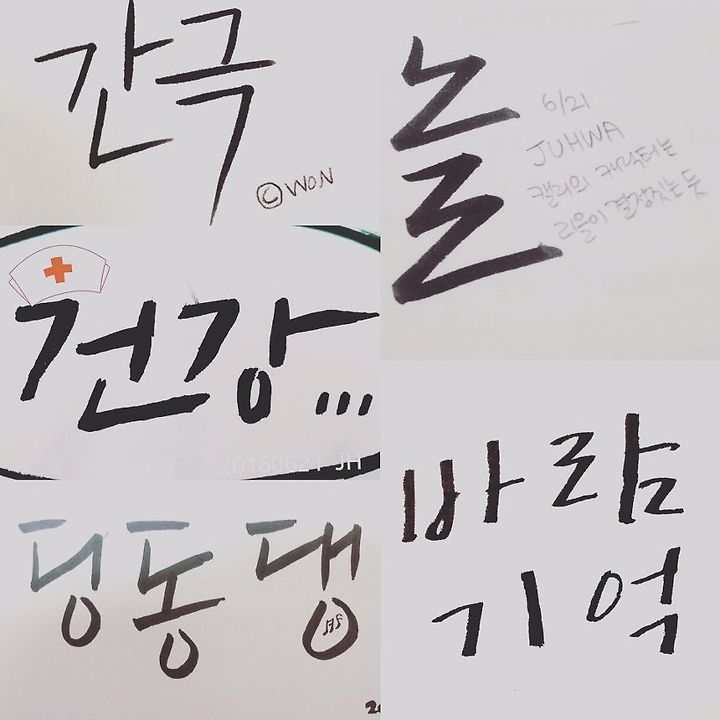 간극
©WON
놀
6/21
JUHWA
캘리의 캐릭터는
리을이 결정짓는듯
건강...
20160621 JH
딩동댕
바람
기억